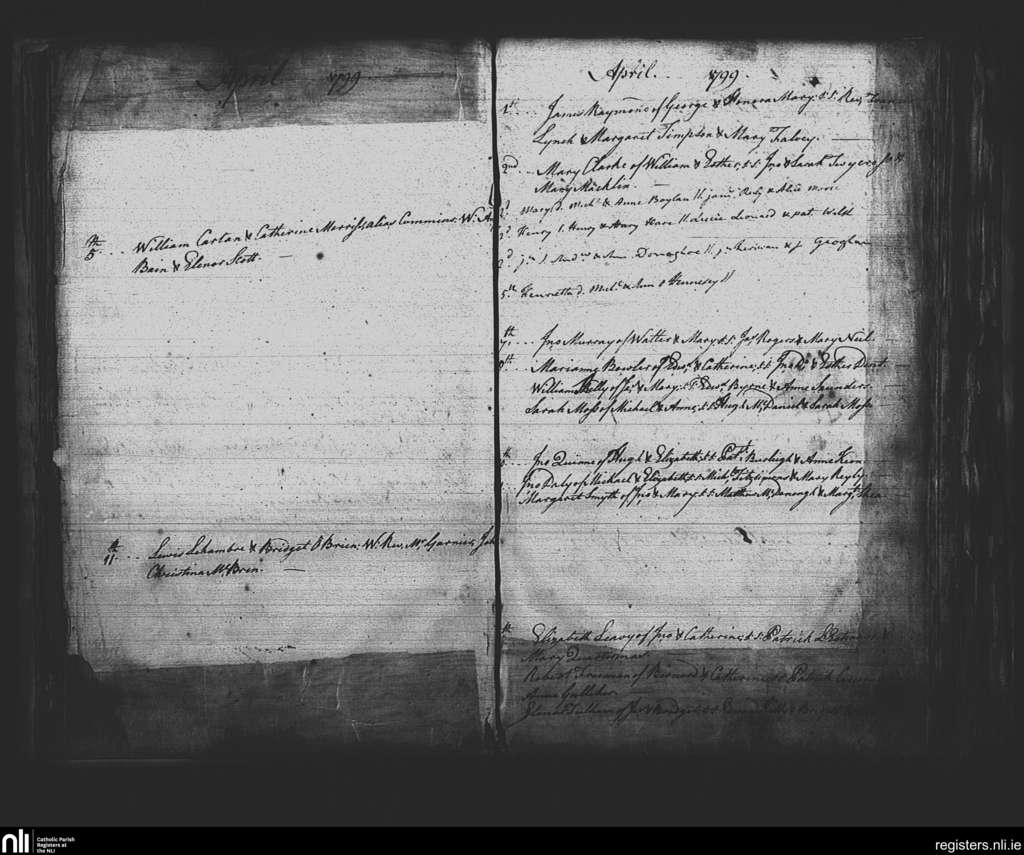 April 1799
5th ... William Cartan & Catherine Morriss, alias Cummins; W:
Bain & Elenor Scott. —
11th ... Lewis Lehambre & Bridget O'Brien; W: Rev. Mr. Garnier,
Christina McBrin. —
April. 1799.
1st ... James Raymond of George & Honora Mary: S:S: Rev.
Lynch & Margaret Timpson & Mary Falvey.
2nd ... Mary Clarke of William & Esther; S:S: Jno. & Sarah
Mary Macklin. —
Mary d. Michl. & Anne Boylan || & Alice Moore
Henry S. Henry & Mary Hore || Lucie Leonard & Pat. Welsh
2d Donaghoe || & J. Geoghan
5th Henrietta d. Michl. & Ann Hennesey ||
7th ... Jno. Murray of Walter & Mary: S:S: Jos. Rogers & Mary Neil.
8th ... Marianne Bowler of Edwd. & Catherine; S:S: & Esther Dent.
William Kelly of Jno. & Mary: S:S: Edwd. Byrne & Anne Saunders.
Sarah Moss of Michael & Anne; S:S: Hugh McDaniel & Sarah Moss
Jno. Quinne of Hugh & Elizabeth: S:S: Patk. Burleigh & Anne
Jno. Daly of Michael & Elizabeth: S:S: Michl. Fitzsimons & Mary Reyly.
Margaret Smyth of Jno. & Mary: S:S: Matthew McDonough & Margt. Shea
Elizabeth Leavy of Jno. & Catherine; S:S: Patrick
Mary
Robert Freeman of Bernard & Catherine: S:S: Patrick
Anne Gallaher
& Bridget: S:S:
nli
Catholic Parish
Registers at
the NLI
registers.nli.ie